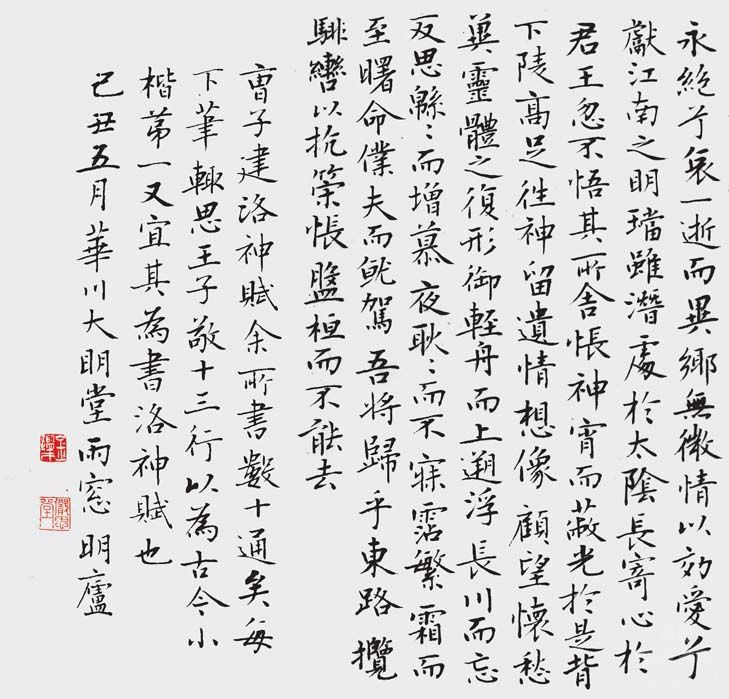 永絶兮哀一逝而異鄉無微情以効愛兮
獻江南之明璫雖潛處於太陰長寄心於
君王忽不悟其所舍悵神宵而蔽光於是背
下陵高足往神留遺情想像顧望懷愁
冀靈體之復形御輕舟而上遡浮長川而忘
反思緜〻而增慕夜耿〻而不寐霑繁霜而
至曙命僕夫而就駕吾將歸乎東路攬
騑轡以抗策悵盤桓而不能去
曹子建洛神賦余所書數十通矣每
下筆輒思王子敬十三行以為古今小
楷第一又宜其為書洛神賦也
己丑五月華川大明堂雨窓明廬